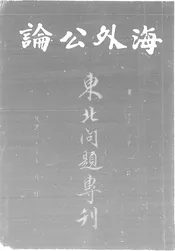 海外公論
東北问題專刊